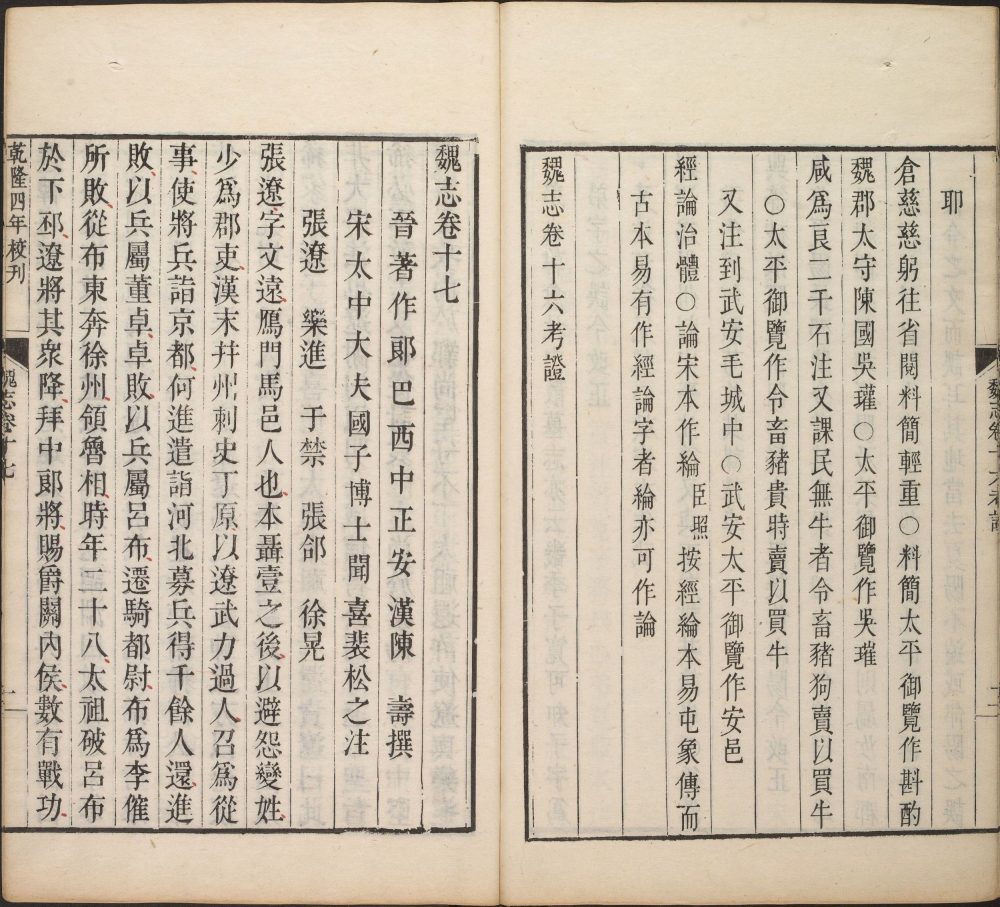 耶
倉慈慈躬往省閱料簡輕重○料簡太平御覽作斟酌
魏郡太守陳國吳瓘○太平御覽作吳璀
咸爲良二千石注又課民無牛者令畜豬狗賣以買牛
○太平御覽作令畜豬貴時賣以買牛
又注到武安毛城中○武安太平御覽作安邑
經論治體○論宋本作綸臣照按經綸本易屯象傳而
古本易有作經論字者綸亦可作論
魏志卷十六考證
魏志卷十七
晉著作郎巴西中正安漢陳壽撰
宋太中大夫國子博士聞喜裴松之注
張遼 樂進 于禁 張郃 徐晃
張遼字文遠鴈門馬邑人也本聶壹之後以避怨變姓
少爲郡吏漢末并州刺史丁原以遼武力過人召爲從
事使將兵詣京都何進遣詣河北募兵得千餘人還進
敗以兵屬董卓卓敗以兵屬呂布遷騎都尉布爲李傕
所敗從布東奔徐州領魯相時年二十八太祖破呂布
於下邳遼將其衆降拜中郎將賜爵關內侯數有戰功
乾隆四年校刊
魏志卷十七